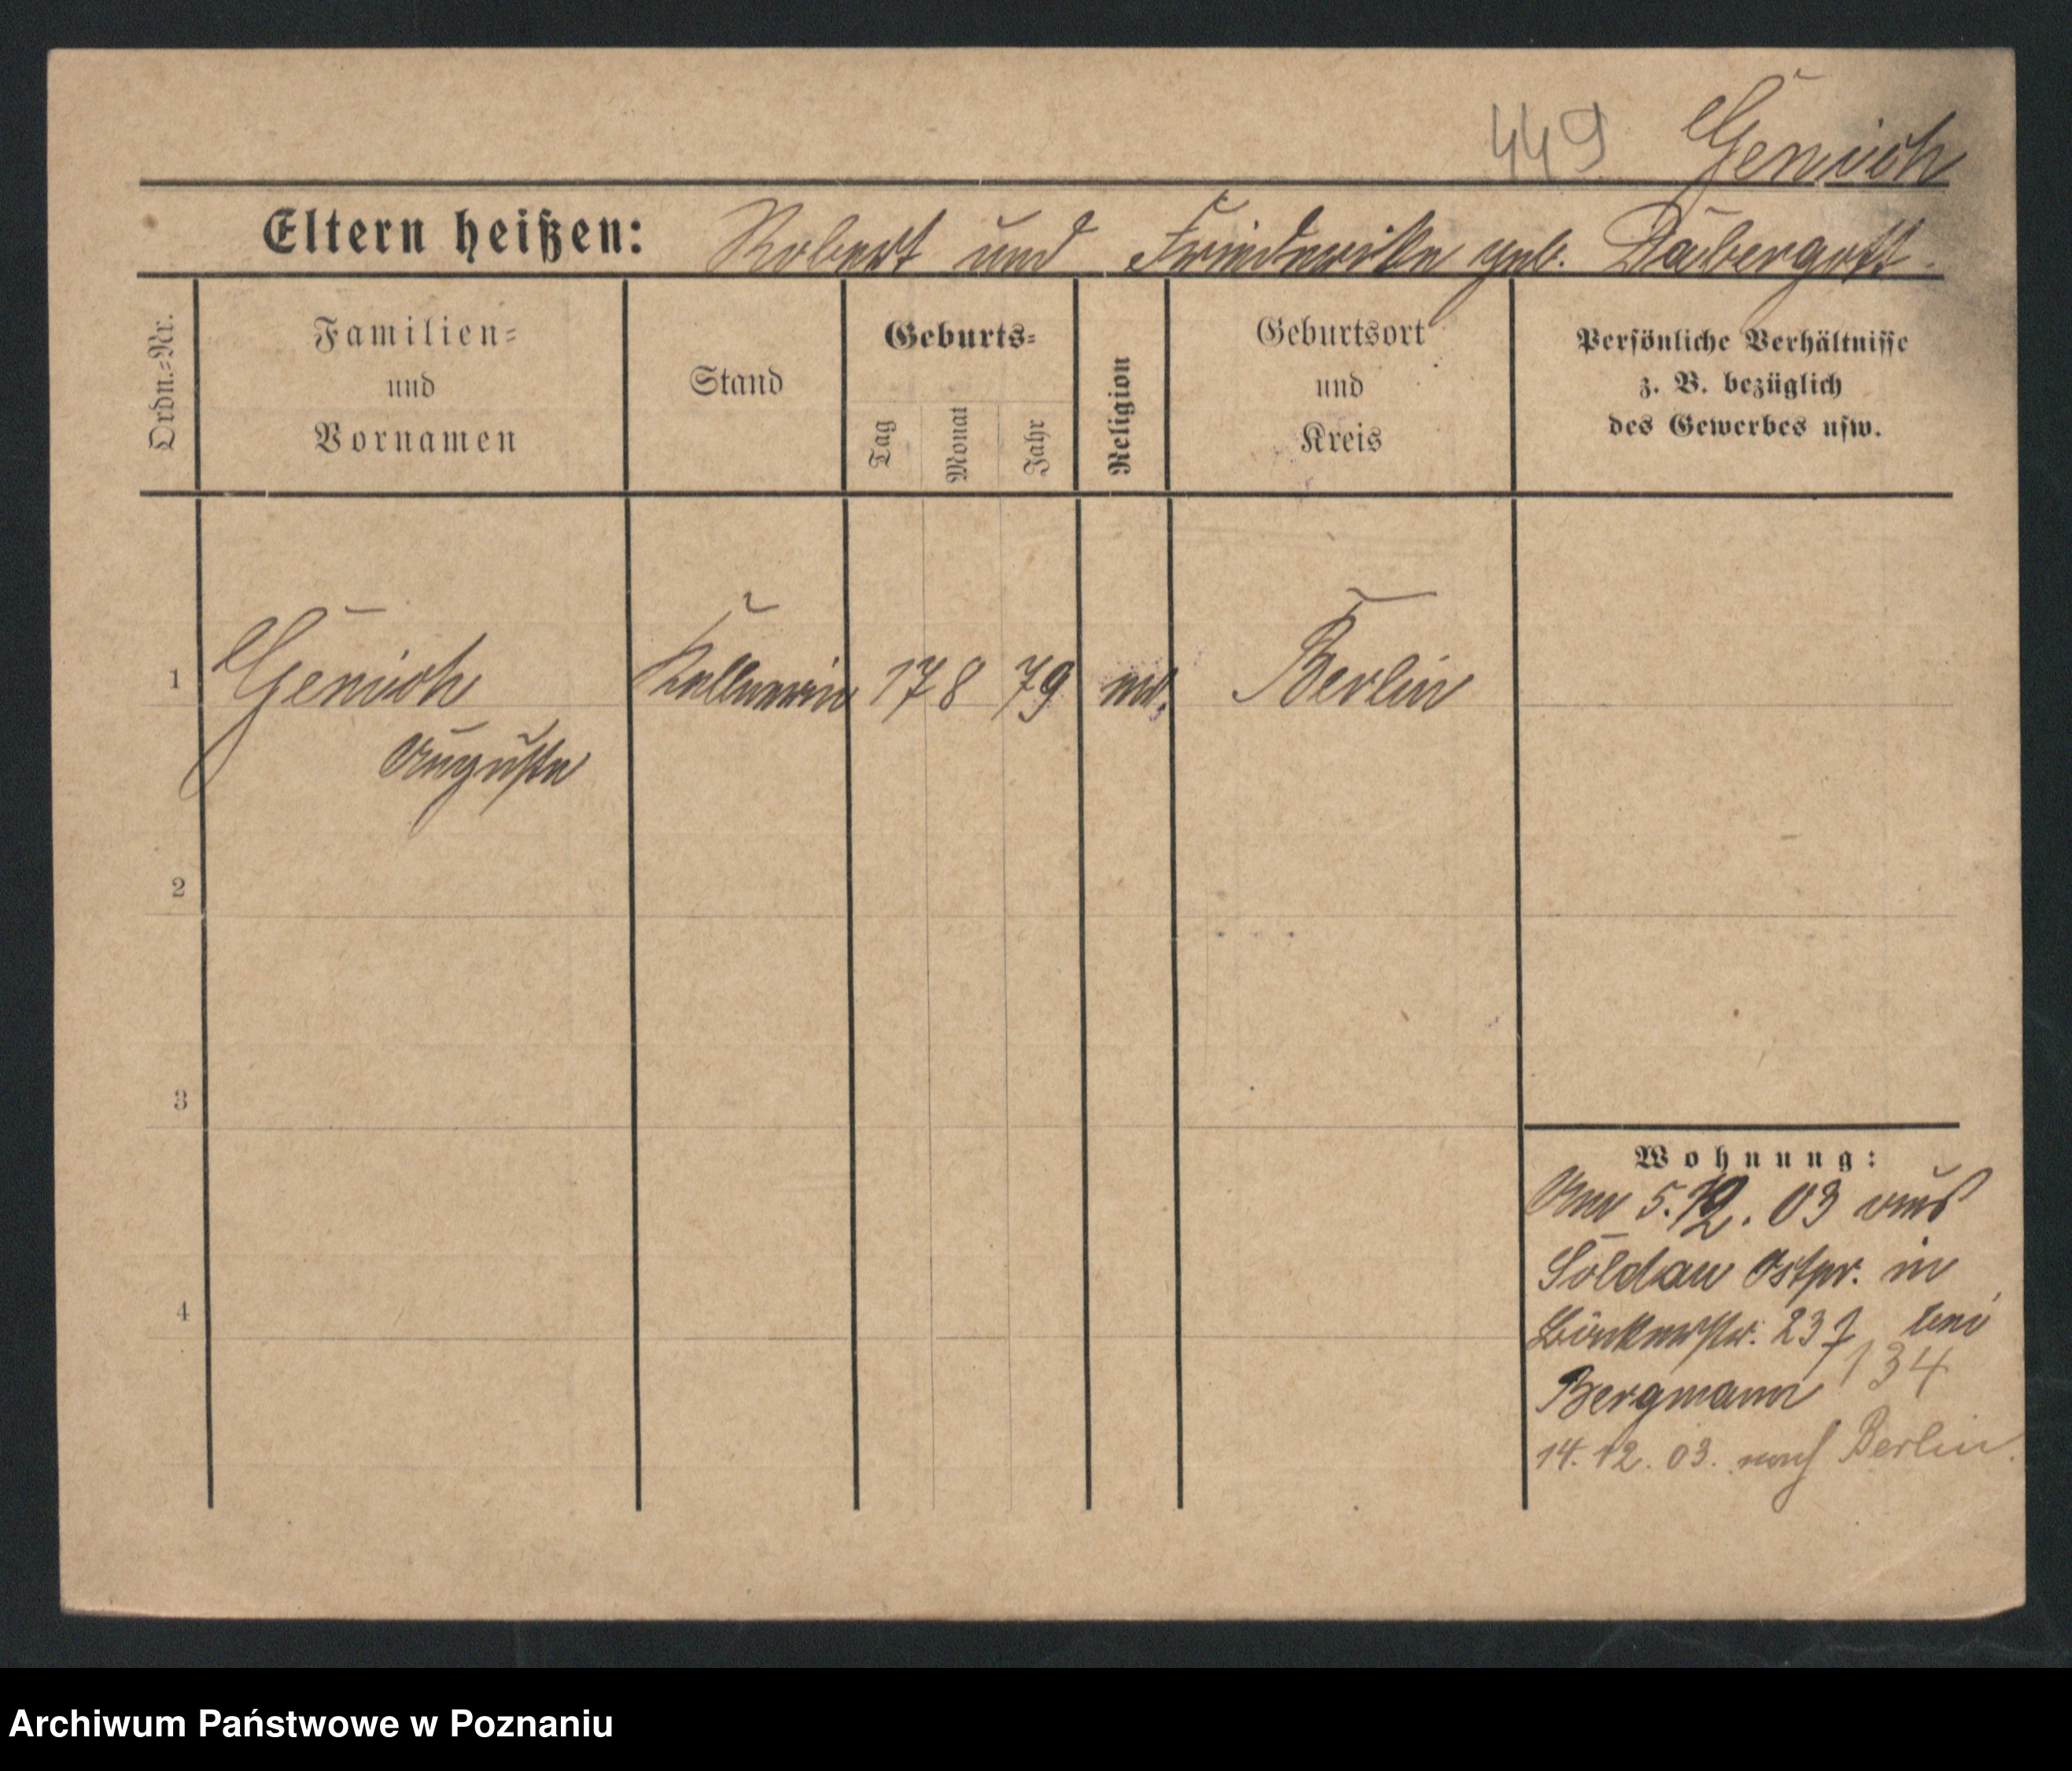 449 Genrich
Eltern heißen: Robert und Friederike geb. Däbergott.
Ordn.-Nr.
Familien-
und
Vornamen
Stand
Geburts-
Tag
Monat
Jahr
Religion
Geburtsort
und
Kreis
Persönliche Verhältnisse
z. B. bezüglich
des Gewerbes usw.
1 Kellnerin 17 8 79 Berlin
Auguste
2
3
4
Wohnung:
Am 5.12.03 aus
Soldau Ostpr. in
237 bei
Bergmann 134
14.12.03. nach Berlin.
Archiwum Państwowe w Poznaniu